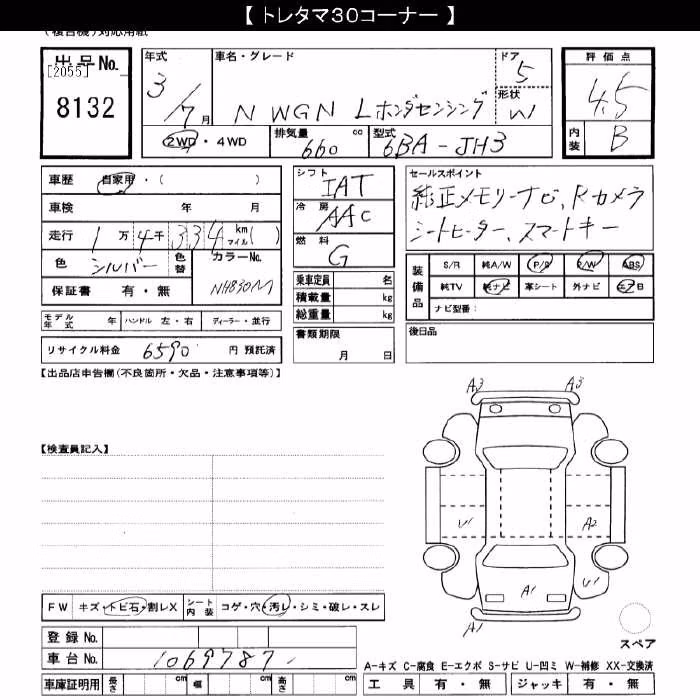 【 トレタマ30コーナー 】
(複合機)対応用紙
出品No.
[2055]
8132
年式
3/7月
車名・グレード
N WGN Lホンダセンシング
ドア
5
形状
W
2WD・4WD
排気量 660 cc
型式 6BA-JH3
評価点
4.5
内装 B
車歴 自家用・( )
車検 年 月
走行 1万4千334 km マイル( )
色 シルバー 色替 カラーNo. NH830M
保証書 有・無
シフト
IAT
冷房
AAC
燃料
G
乗車定員 名
積載量 kg
総重量 kg
書類期限
月 日
セールスポイント
純正メモリーナビ、Rカメラ
シートヒーター、スマートキー
装備品
S/R 純A/W P/S P/W ABS
純TV 純ナビ 革シート 外ナビ エアB
ナビ型番:
後日品
モデル年式 年 ハンドル 左・右 ディーラー・並行
リサイクル料金 6590 円 預託済
【出品店申告欄(不良箇所・欠品・注意事項等)】
【検査員記入】
A3 A3
U1 A2
A1 U1
A1
スペア
FW キズ・トビ石・割レX シート内装 コゲ・穴・汚レ・シミ・破レ・スレ
登録 No.
車台 No. 1069787
車庫証明用 長さ cm 幅 cm 高さ cm
A-キズ C-腐食 E-エクボ S-サビ U-凹ミ W-補修 XX-交換済
工具 有・無 ジャッキ 有・無